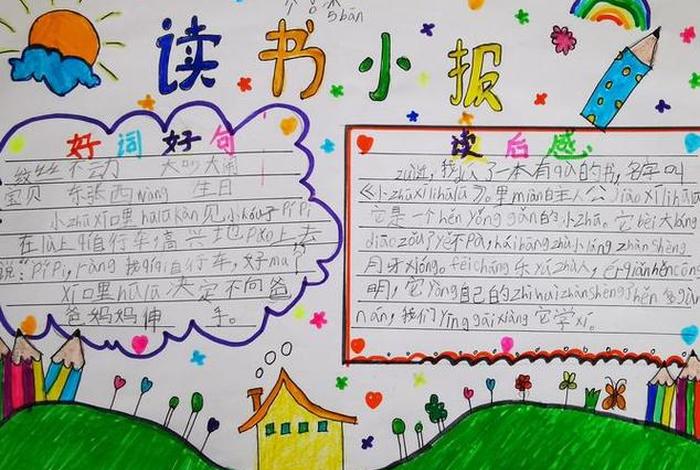 5bān
读书小报
好词好句
纹丝不动 大吵大闹
宝贝 东张西wàng 生日
小zhū xī里hūlū kàn见小hóu子Pí Pí
在lù上qí自行车,高兴地pǎo上去
说:"Pí Pí,ràng 我qí qí自行车,好ma?"
xī里hūlū决定不向爸
爸妈妈伸 手。
读后感
zuì近,我kàn了一本有qù的书,名字叫
《小zhū xī lī hū lū》。里miàn的主人公jiào xī lī hū lū
它是一个hěn yǒng gǎn的小zhū。它bèi大láng
diāo zǒu了yě不pà,hái bāng zhù小láng zhàn shèng
月牙xióng。fēi cháng乐yú zhù人,ér qiě hěn cōng
明,它yòng自己的zhì huì zhàn shèng了hěn多kùn
nán,我们yīng gāi xiàng它学xí。